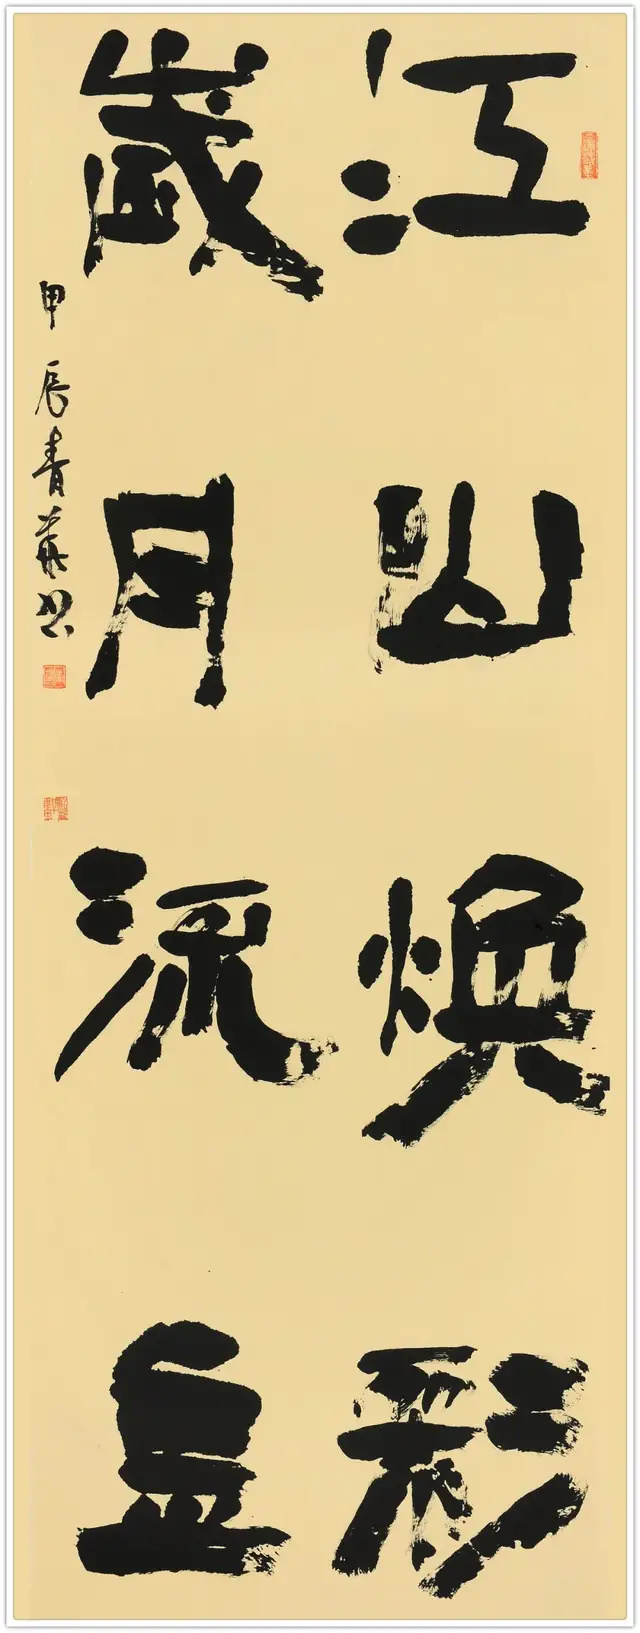 江山焕彩
歲月流金
甲辰青華书